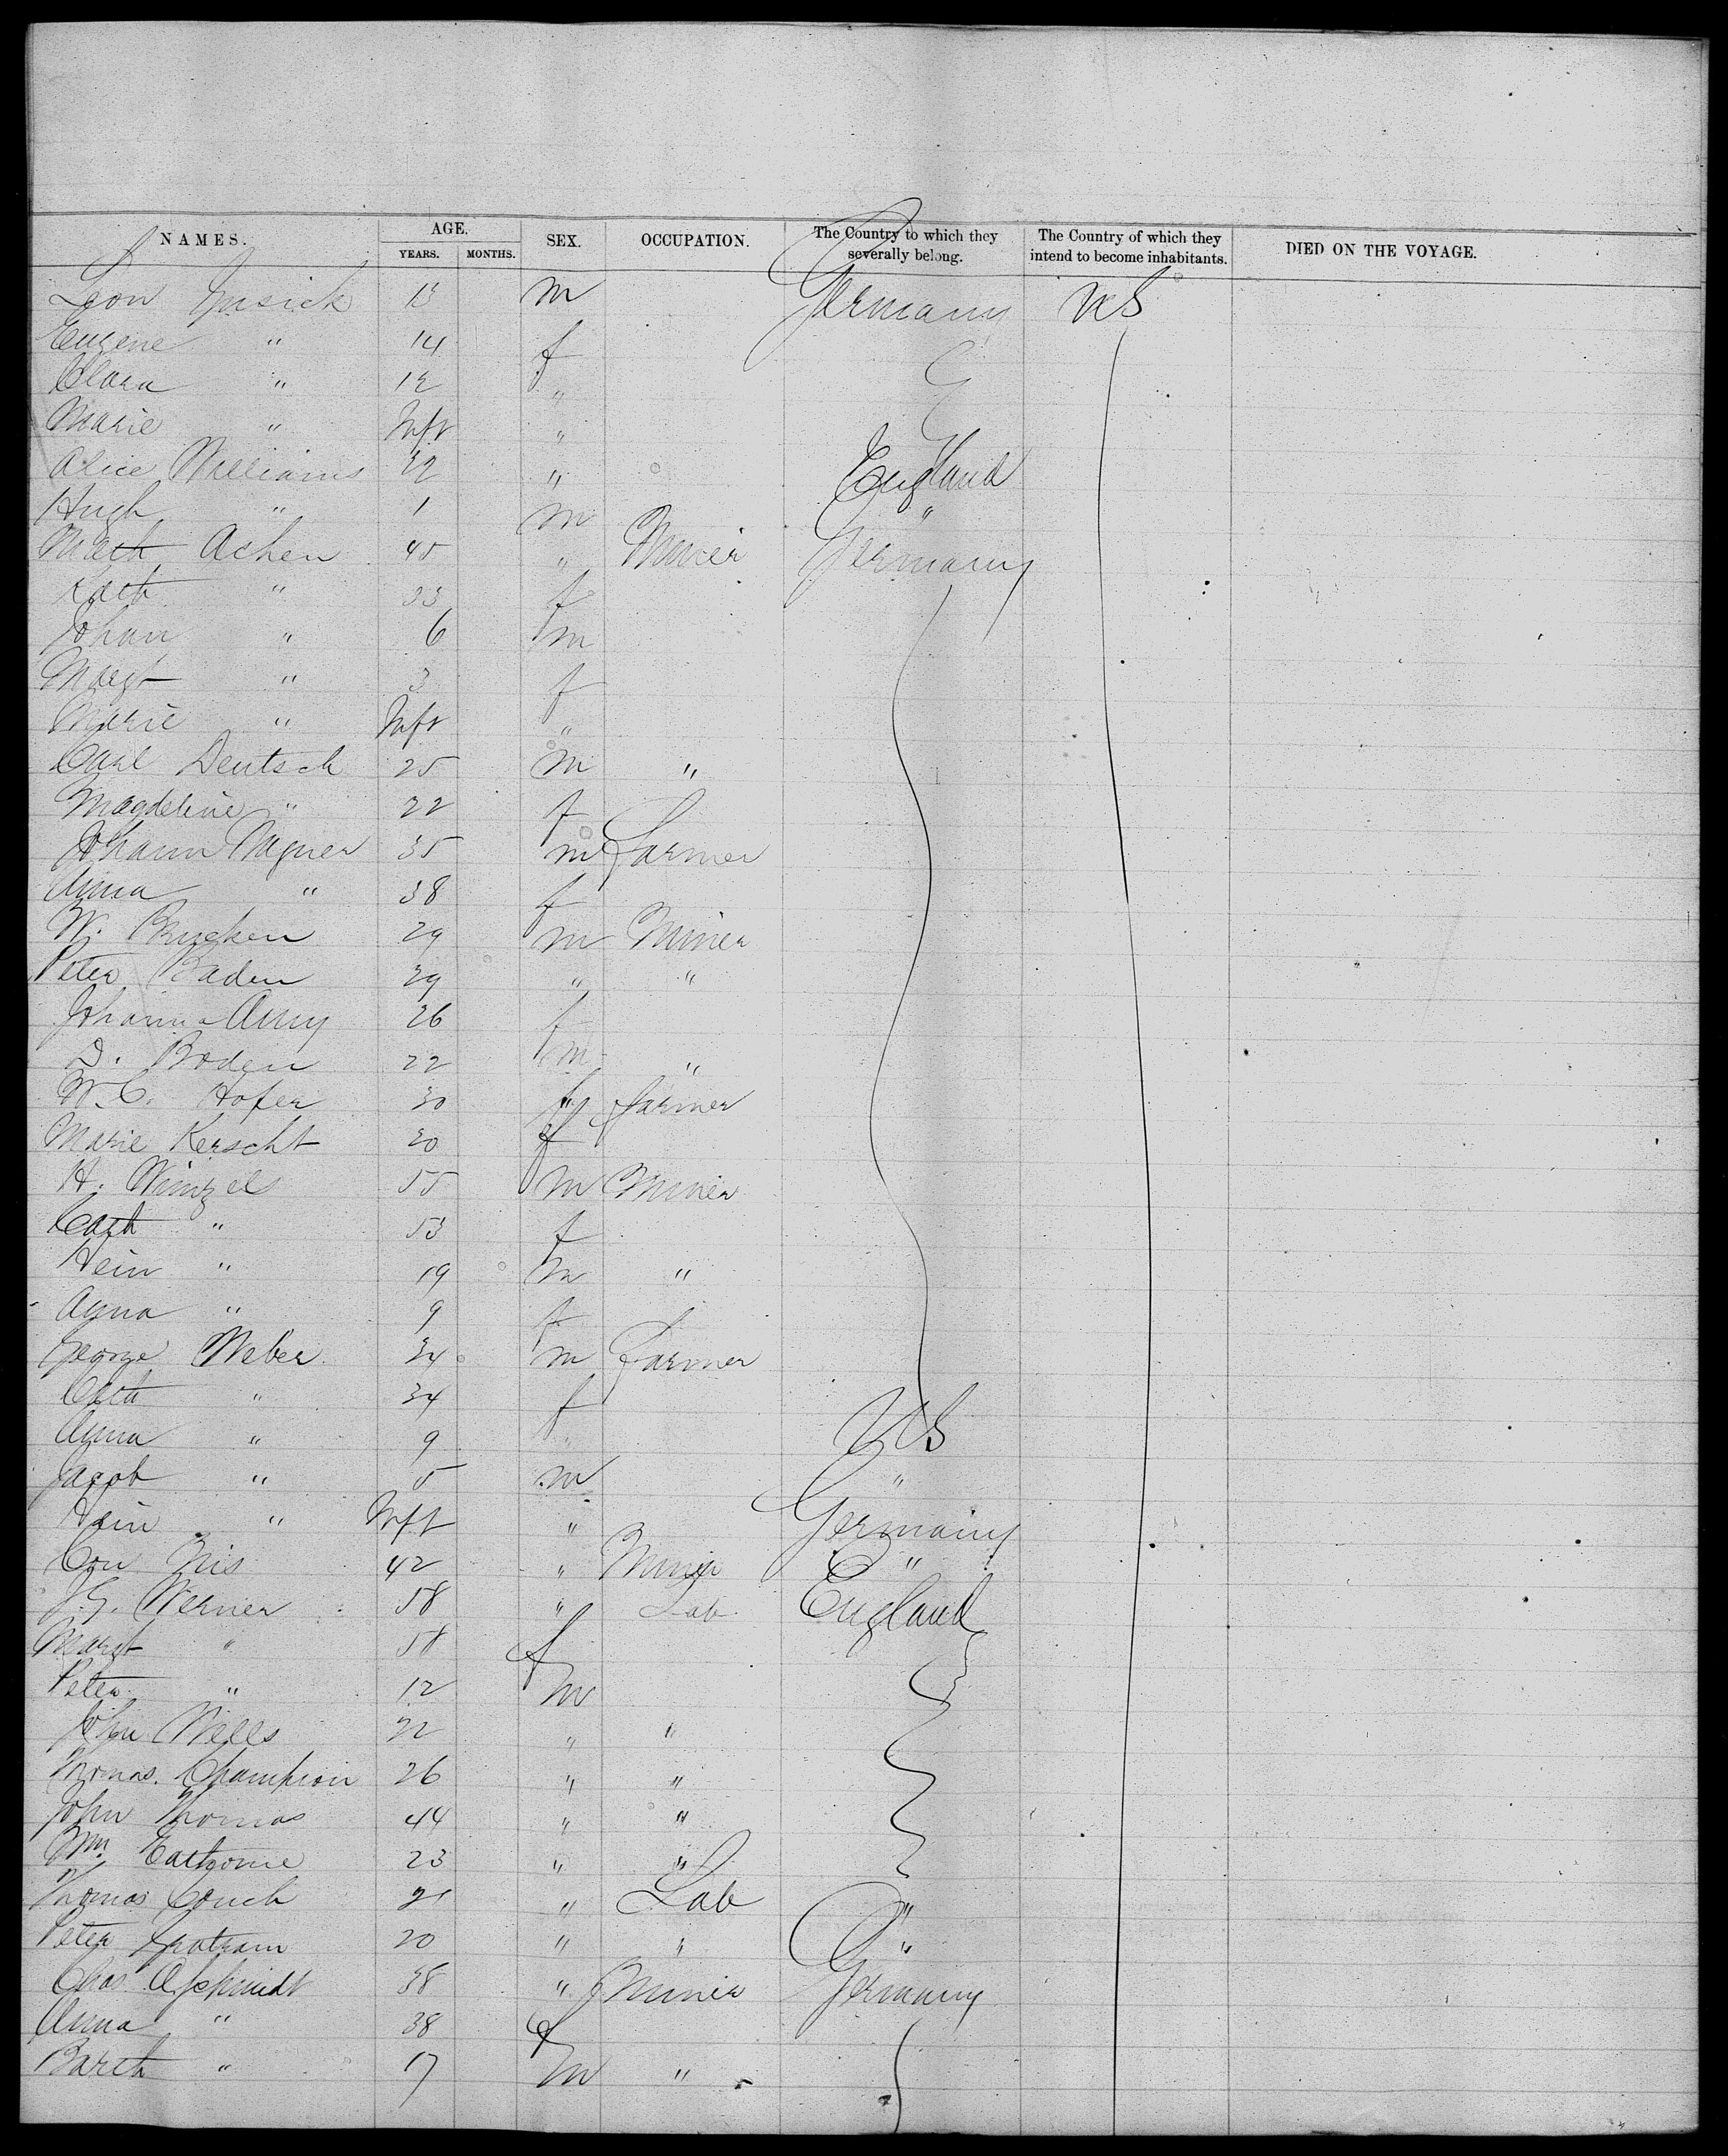 NAMES. AGE. YEARS. MONTHS. SEX. OCCUPATION. The Country to which they severally belong. The Country of which they intend to become inhabitants. DIED ON THE VOYAGE.
Leon 13 m Germany US
Eugene " 14 f
Clara " 12 "
Marie " Inft "
Alice Williams 32 " England
Hugh " 1 m "
Math Achen 45 " Miner Germany
Kath " 33 f
Johan " 6 m
Margt " 3 f
Marie " Inft "
Carl Deutsch 25 m "
Magdeline " 22 f
Johann Wagner 35 m Farmer
Anna " 38 f
W. Brucken 29 m Miner
Peter Baden 29 " "
Johanna Amy 26 f
D. Boden 22 m "
W. C. Hofer 30 " farmer
Marie Kerscht 20 f
H. Winzel 55 m Miner
Cath " 53 f
Hein " 19 m "
Anna " 9 f
George Weber 34 m Farmer
Cath " 34 f
Anna " 9 " US
Jacob " 5 m "
Hein " Inft " Germany
Con Nis 42 " Miner "
J. G. Werner 58 " Lab. England
Margt " 58 f
Peter " 12 m
John Wells 22 " "
Thomas Champion 26 " "
John Thomas 44 " "
Wm. 23 " "
Thomas Couch 21 " Lab "
Peter 20 " " "
Chas. A. Schmidt 38 " Miner Germany
Anna " 38 f
Barth " 17 m "